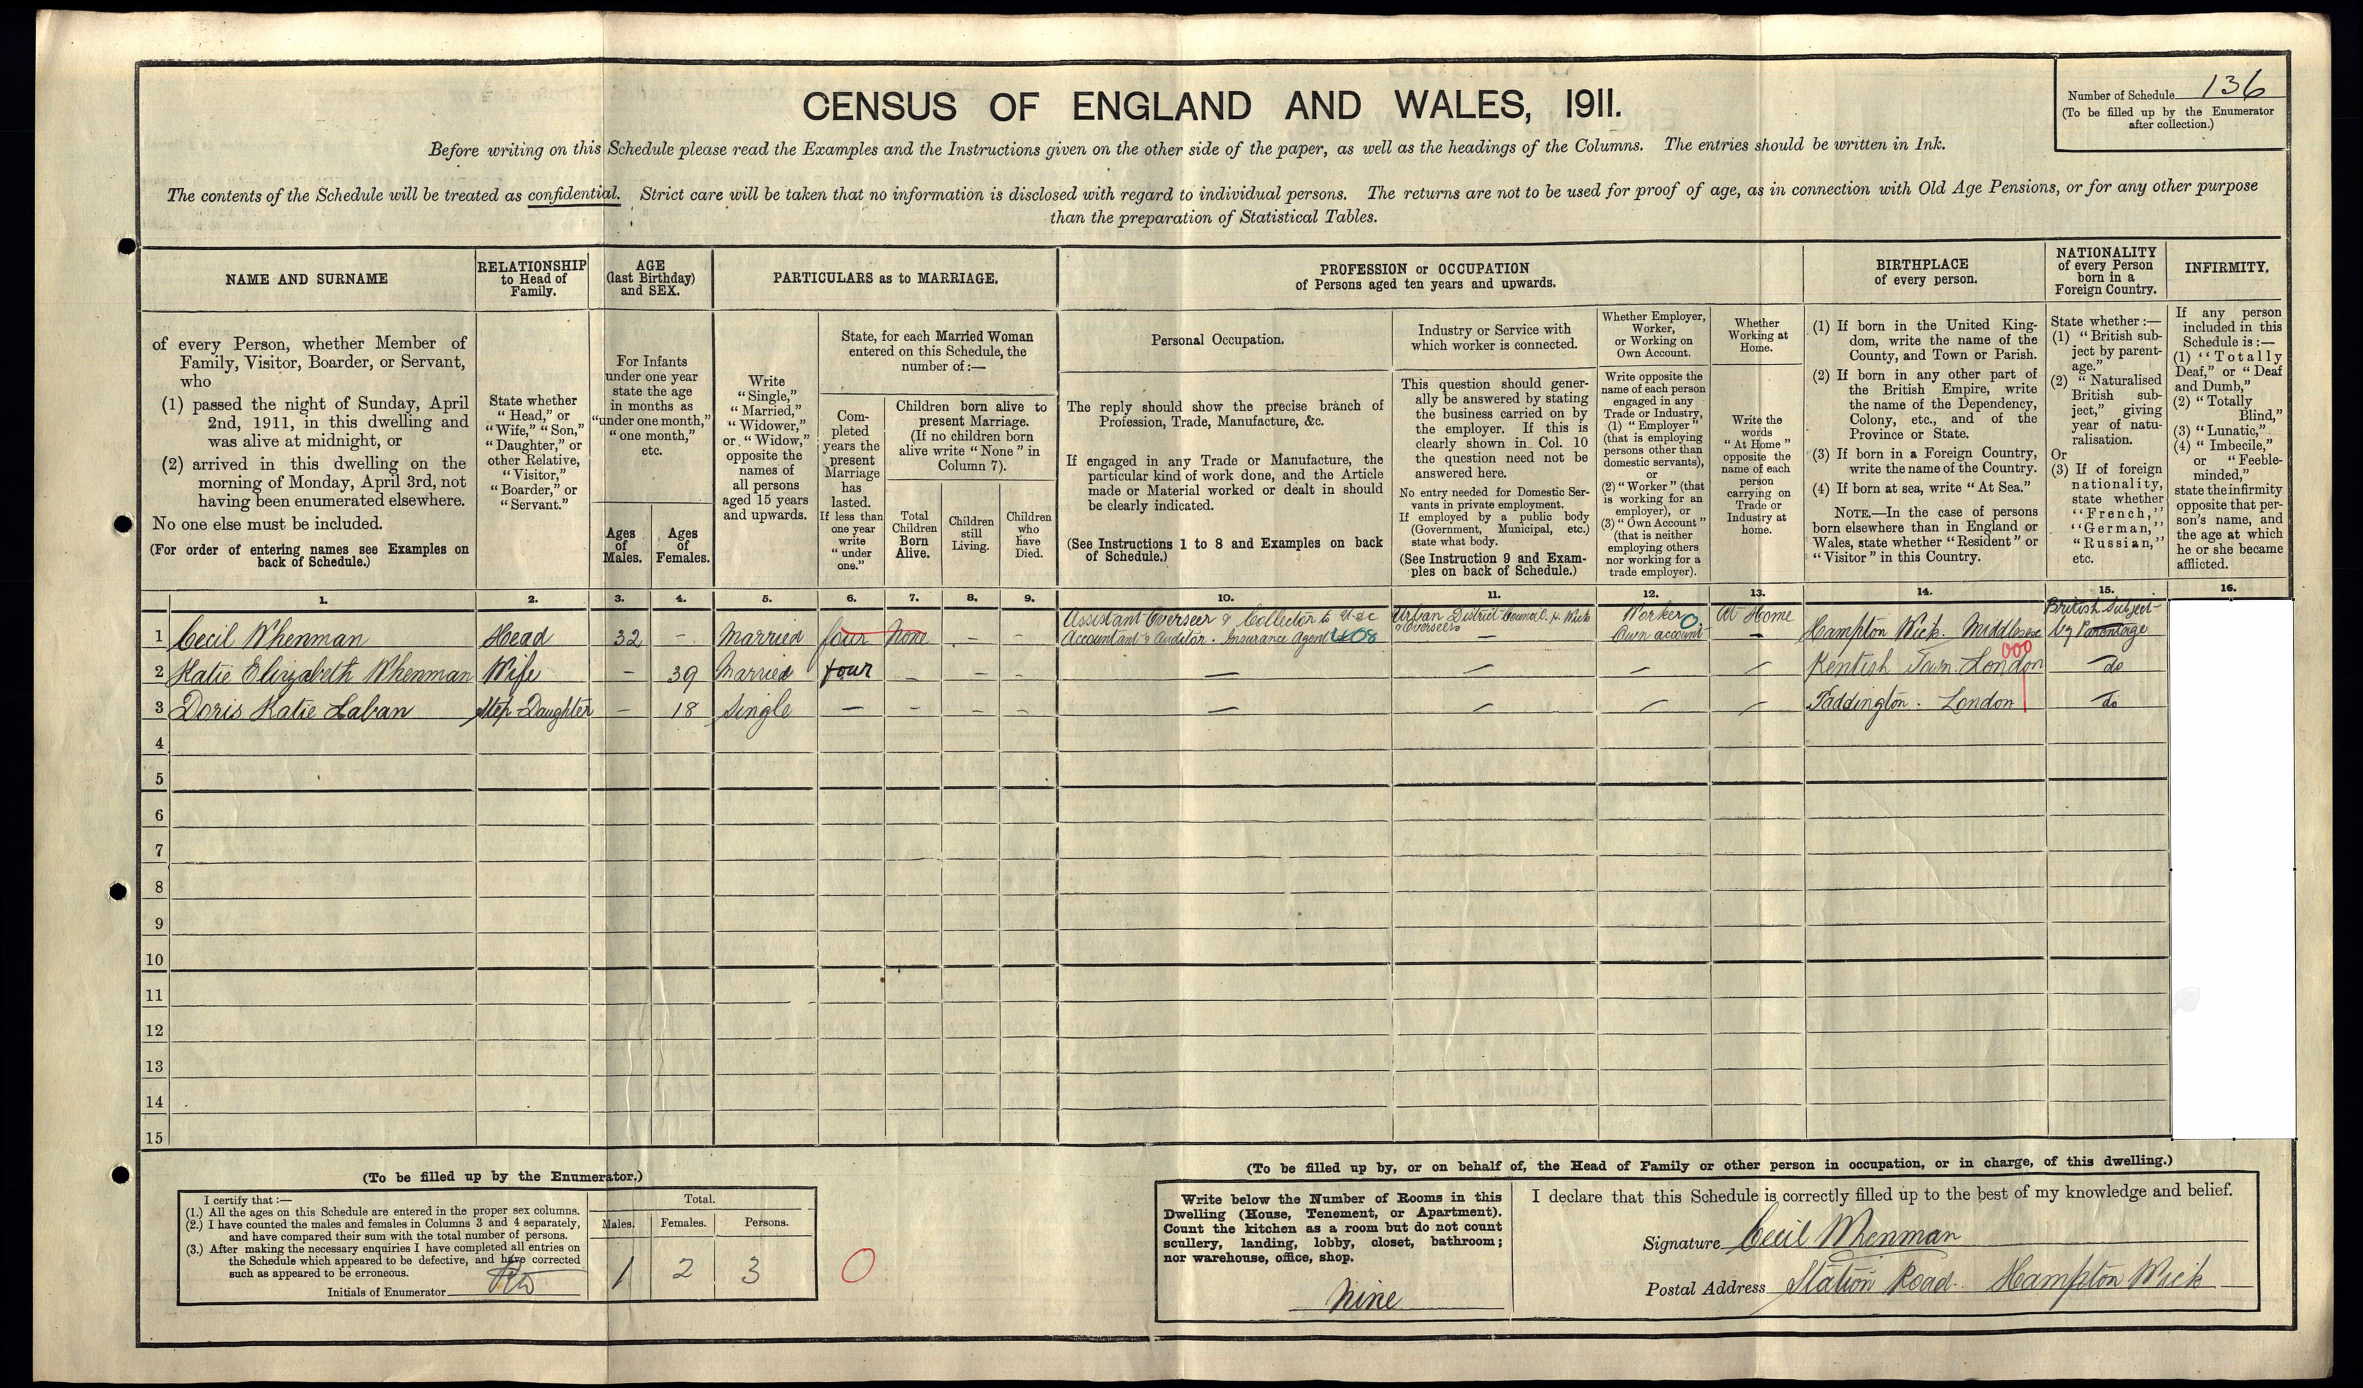 CENSUS OF ENGLAND AND WALES, 1911.
Number of Schedule 136
(To be filled up by the Enumerator
after collection.)
Before writing on this Schedule please read the Examples and the Instructions given on the other side of the paper, as well as the headings of the Columns. The entries should be written in Ink.
The contents of the Schedule will be treated as confidential. Strict care will be taken that no information is disclosed with regard to individual persons. The returns are not to be used for proof of age, as in connection with Old Age Pensions, or for any other purpose
than the preparation of Statistical Tables.
NAME AND SURNAME
of every Person, whether Member of
Family, Visitor, Boarder, or Servant,
who
(1) passed the night of Sunday, April
2nd, 1911, in this dwelling and
was alive at midnight, or
(2) arrived in this dwelling on the
morning of Monday, April 3rd, not
having been enumerated elsewhere.
No one else must be included.
(For order of entering names see Examples on
back of Schedule.)
RELATIONSHIP
to Head of
Family.
State whether
"Head," or
"Wife," "Son,"
"Daughter," or
other Relative,
"Visitor,"
"Boarder," or
"Servant."
AGE
(last Birthday)
and SEX.
For Infants
under one year
state the age
in months as
"under one month,"
"one month,"
etc.
Ages
of
Males.
Ages
of
Females.
PARTICULARS as to MARRIAGE.
Write
"Single,"
"Married,"
"Widower,"
or "Widow,"
opposite the
names of
all persons
aged 15 years
and upwards.
State, for each Married Woman
entered on this Schedule, the
number of:—
Com-
pleted
years the
present
Marriage
has
lasted.
If less than
one year
write
"under
one."
Children born alive to
present Marriage.
(If no children born
alive write "None" in
Column 7).
Total
Children
Born
Alive.
Children
still
Living.
Children
who
have
Died.
PROFESSION or OCCUPATION
of Persons aged ten years and upwards.
Personal Occupation.
The reply should show the precise branch of
Profession, Trade, Manufacture, &c.
If engaged in any Trade or Manufacture, the
particular kind of work done, and the Article
made or Material worked or dealt in should
be clearly indicated.
(See Instructions 1 to 8 and Examples on back
of Schedule.)
Industry or Service with
which worker is connected.
This question should gener-
ally be answered by stating
the business carried on by
the employer. If this is
clearly shown in Col. 10
the question need not be
answered here.
No entry needed for Domestic Ser-
vants in private employment.
If employed by a public body
(Government, Municipal, etc.)
state what body.
(See Instruction 9 and Exam-
ples on back of Schedule.)
Whether Employer,
Worker,
or Working on
Own Account.
Write opposite the
name of each person
engaged in any
Trade or Industry,
(1) "Employer"
(that is employing
persons other than
domestic servants),
or
(2) "Worker" (that
is working for an
employer), or
(3) "Own Account"
(that is neither
employing others
nor working for a
trade employer).
Whether
Working at
Home.
Write the
words
"At Home"
opposite the
name of each
person
carrying on
Trade or
Industry at
home.
BIRTHPLACE
of every person.
(1) If born in the United King-
dom, write the name of the
County, and Town or Parish.
(2) If born in any other part of
the British Empire, write
the name of the Dependency,
Colony, etc., and of the
Province or State.
(3) If born in a Foreign Country,
write the name of the Country.
(4) If born at sea, write "At Sea."
NOTE.—In the case of persons
born elsewhere than in England or
Wales, state whether "Resident" or
"Visitor" in this Country.
NATIONALITY
of every Person
born in a
Foreign Country.
State whether:—
(1) "British sub-
ject by parent-
age."
(2) "Naturalised
British sub-
ject," giving
year of natu-
ralisation.
Or
(3) If of foreign
nationality,
state whether
"French,"
"German,"
"Russian,"
etc.
INFIRMITY.
If any person
included in this
Schedule is:—
(1) "Totally
Deaf," or "Deaf
and Dumb,"
(2) "Totally
Blind,"
(3) "Lunatic,"
(4) "Imbecile,"
or "Feeble-
minded,"
state the infirmity
opposite that per-
son's name, and
the age at which
he or she became
afflicted.
1. 2. 3. 4. 5. 6. 7. 8. 9. 10. 11. 12. 13. 14. 15. 16.
Assistant Overseer & Collector to U.D.C Urban District Council H. Wick Worker At Home British Subject
& Overseers
1 Cecil Whenman Head 32 – Married four None – – Accountant & Auditor. Insurance Agent — Own account — Hampton Wick. Middlesex by Parentage
000
2 Katie Elizabeth Whenman Wife – 39 Married four – – – — — — — Kentish Town. London do
3 Doris Katie Laban Step-Daughter – 18 Single — – – – — — — — Paddington. London do
4
5
6
7
8
9
10
11
12
13
14
15
(To be filled up by the Enumerator.)
I certify that:—
(1.) All the ages on this Schedule are entered in the proper sex columns.
(2.) I have counted the males and females in Columns 3 and 4 separately,
and have compared their sum with the total number of persons.
(3.) After making the necessary enquiries I have completed all entries on
the Schedule which appeared to be defective, and have corrected
such as appeared to be erroneous.
Initials of Enumerator
Total.
Males. Females. Persons.
1 2 3
0
(To be filled up by, or on behalf of, the Head of Family or other person in occupation, or in charge, of this dwelling.)
Write below the Number of Rooms in this
Dwelling (House, Tenement, or Apartment).
Count the kitchen as a room but do not count
scullery, landing, lobby, closet, bathroom;
nor warehouse, office, shop.
Nine
I declare that this Schedule is correctly filled up to the best of my knowledge and belief.
Signature Cecil Whenman
Postal Address Station Road. Hampton Wick